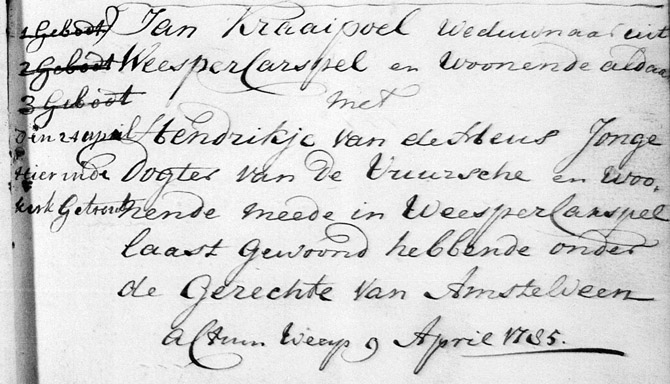 1 Gebodt Jan Kraaipoel Weduwnaar uit
2 Gebodt WeesperCarspel en Woonende aldaar
3 Gebodt met
Din 24 april Hendrikje van de Meus Jonge
Hier in de Dogter van De Vuursche en Woo,
kerk Getrout nende meede in WeesperCarspel
laast Gewoond hebbende onder
de Gerechte van Amstelveen
Actum Weesp 9 April 1785.